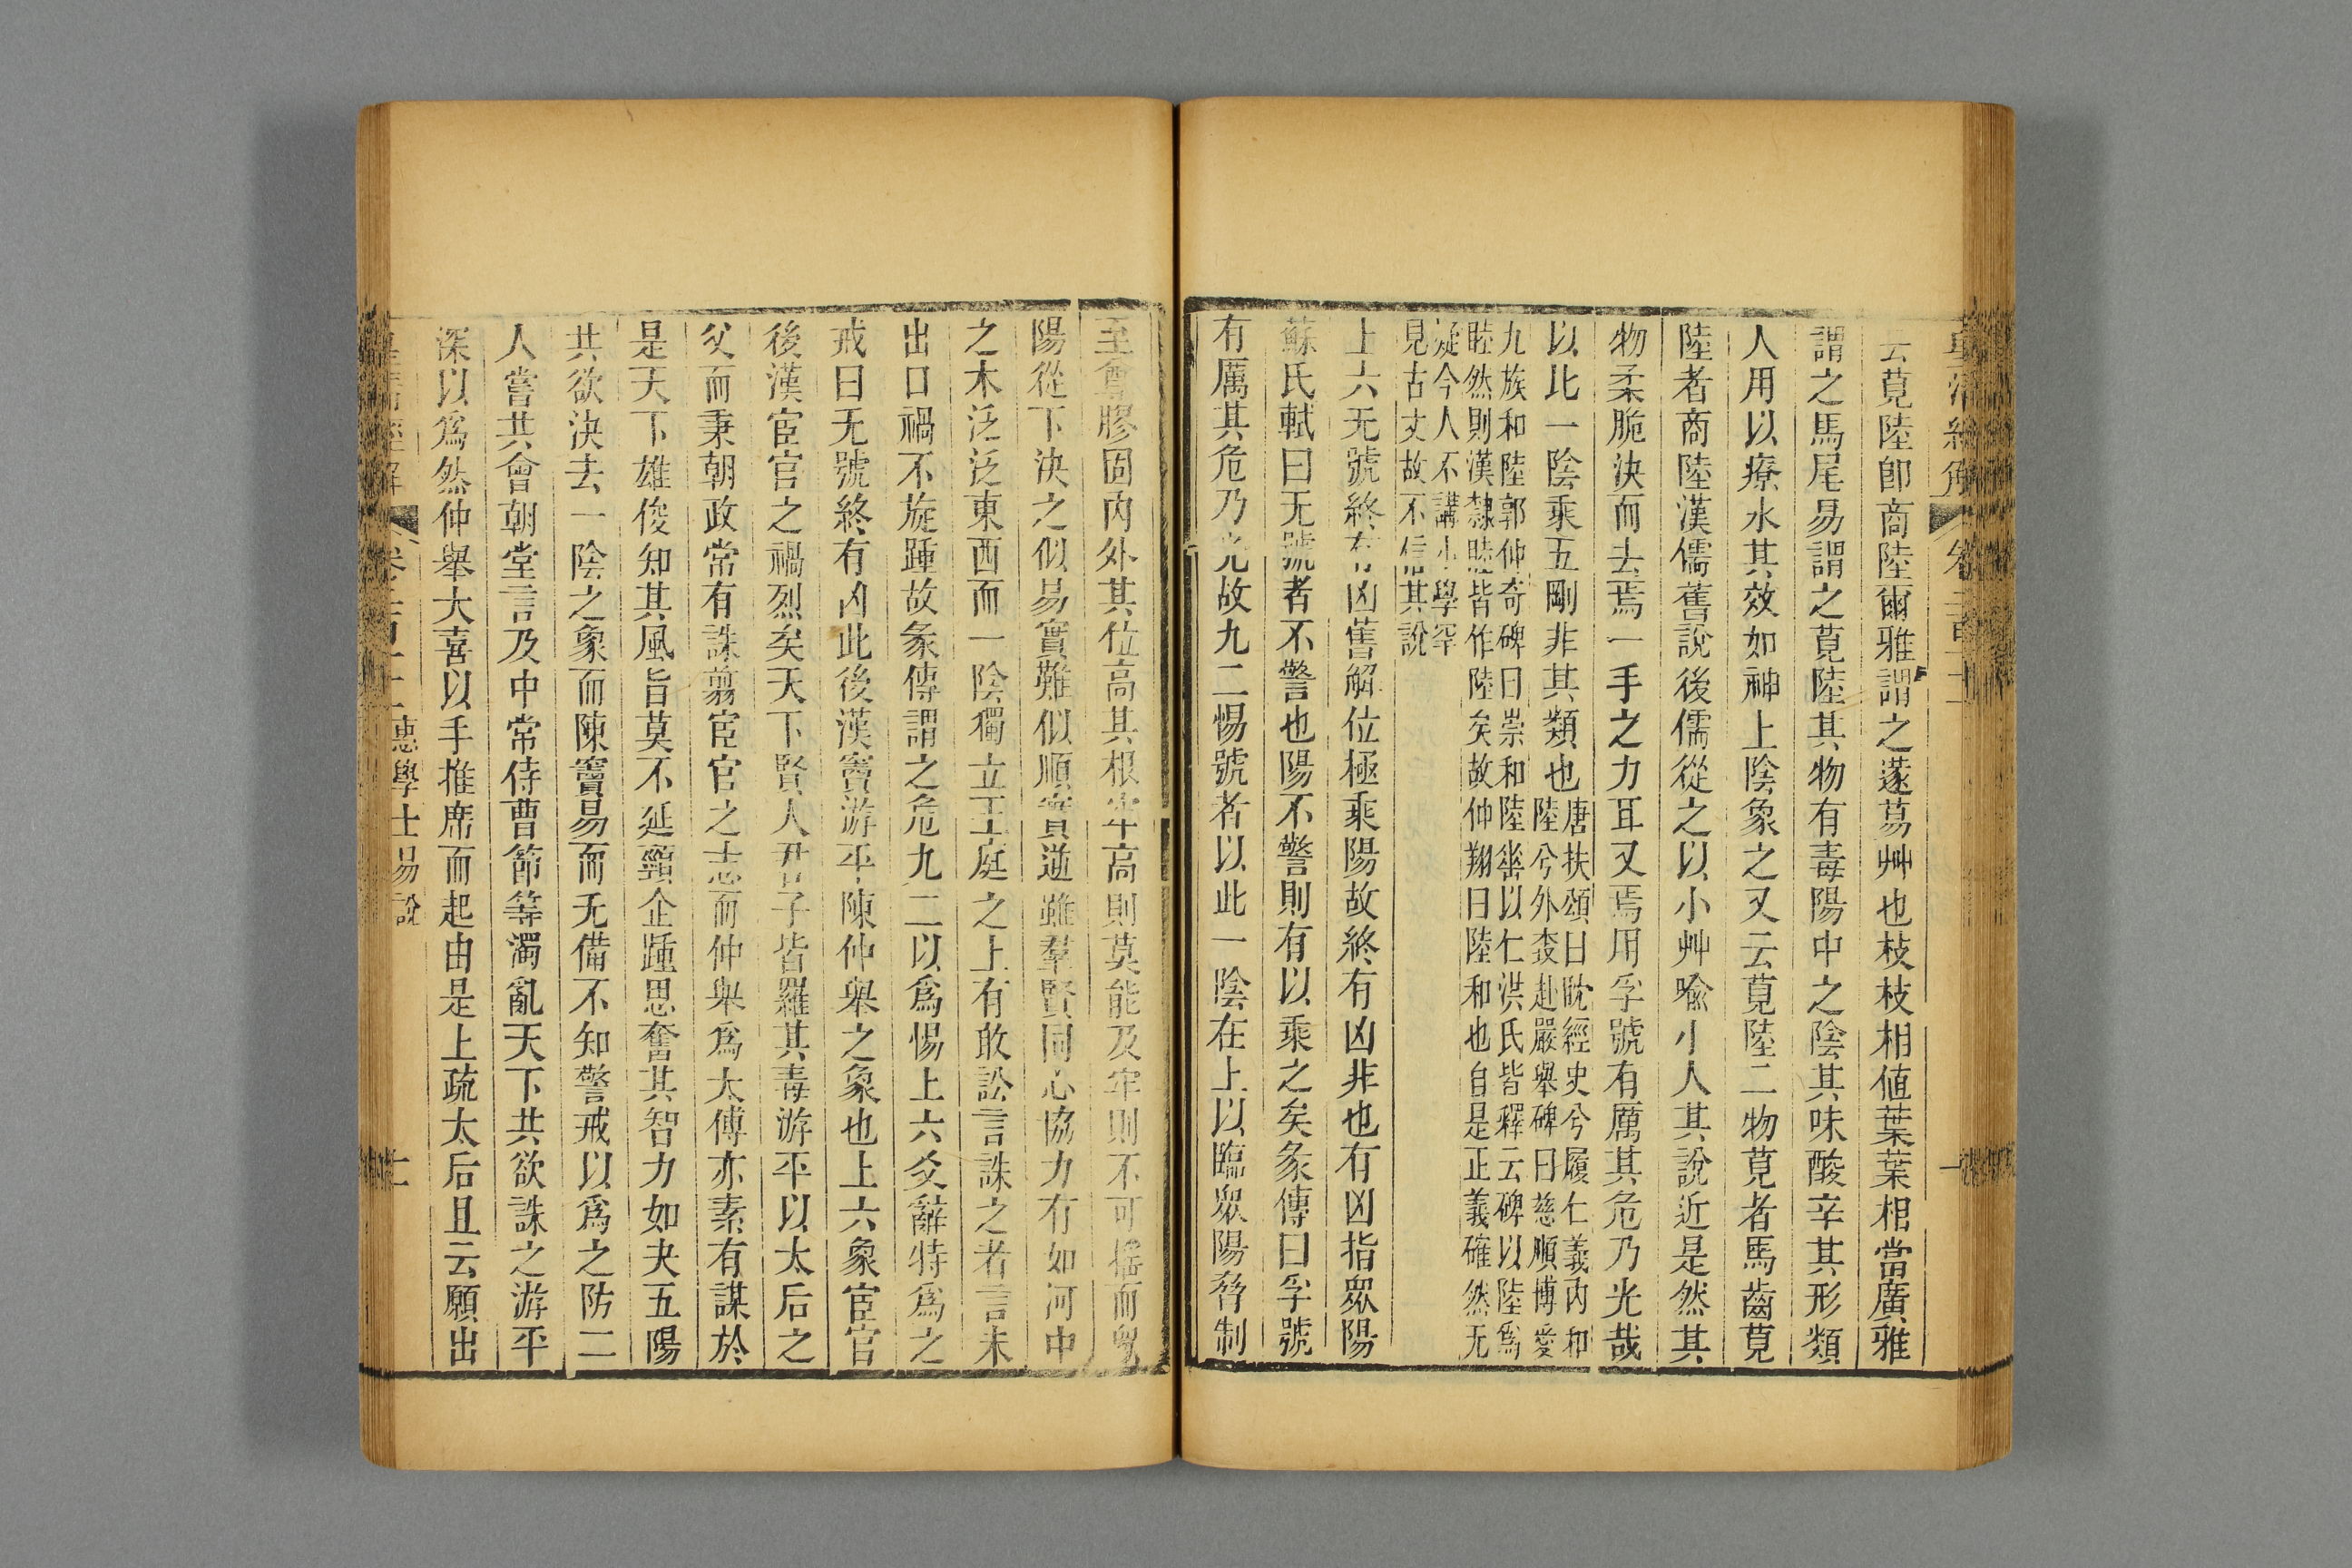 云莧陸卽商陸爾雅謂之蓫葛艸也枝枝相值葉葉相當廣雅
謂之馬尾易謂之莧陸其物有毒陽中之陰其味酸辛其形類
人用以療水其效如神上陰象之又云莧陸二物莧者馬齒莧
陸者商陸漢儒舊說後儒從之以小艸喻小人其說近是然其
物柔脆決而去焉一手之力耳又焉用孚號有厲其危乃光哉
以比一陰乘五剛非其類也
唐扶頌曰眈經史兮履仁義內和
陸兮外奃赴嚴舉碑曰慈順博愛
九族和陸郭仲奇碑曰崇和陸
以仁洪氏皆釋云碑以陸爲
睦然則漢隸睦皆作陸矣故仲翔曰陸和也自是正義確然无
疑今人不講小學罕
見古文故不信其說
上六无號終有凶舊解位極乘陽故終有凶非也有凶指眾陽
蘇氏軾曰无號者不警也陽不警則有以乘之矣彖傳曰孚號
有厲其危乃光故九二惕號者以此一陰在上以臨眾陽脅制
至尊膠固內外其位高其根牢高則莫能及牢則不可搖而
陽從下決之似易實難似順實逆雖羣賢同心協力有如河中
之木泛泛東西而一陰獨立王庭之上有敢訟言誅之者言未
出口禍不旋踵故彖傳謂之危九二以爲惕上六爻辭特爲之
戒曰无號終有凶此後漢竇游平陳仲舉之象也上六象宦官
後漢宦官之禍烈矣天下賢人君子皆羅其毒游平以太后之
父而秉朝政常有誅翦宦官之志而仲舉爲太傅亦素有謀於
是天下雄俊知其風旨莫不延頸企踵思奮其智力如夬五陽
共欲決去一陰之象而陳竇易而无備不知警戒以爲之防二
人嘗共會朝堂言及中常侍曹節等濁亂天下共欲誅之游平
深以爲然仲舉大喜以手推席而起由是上疏太后且云願出
惠學士易說